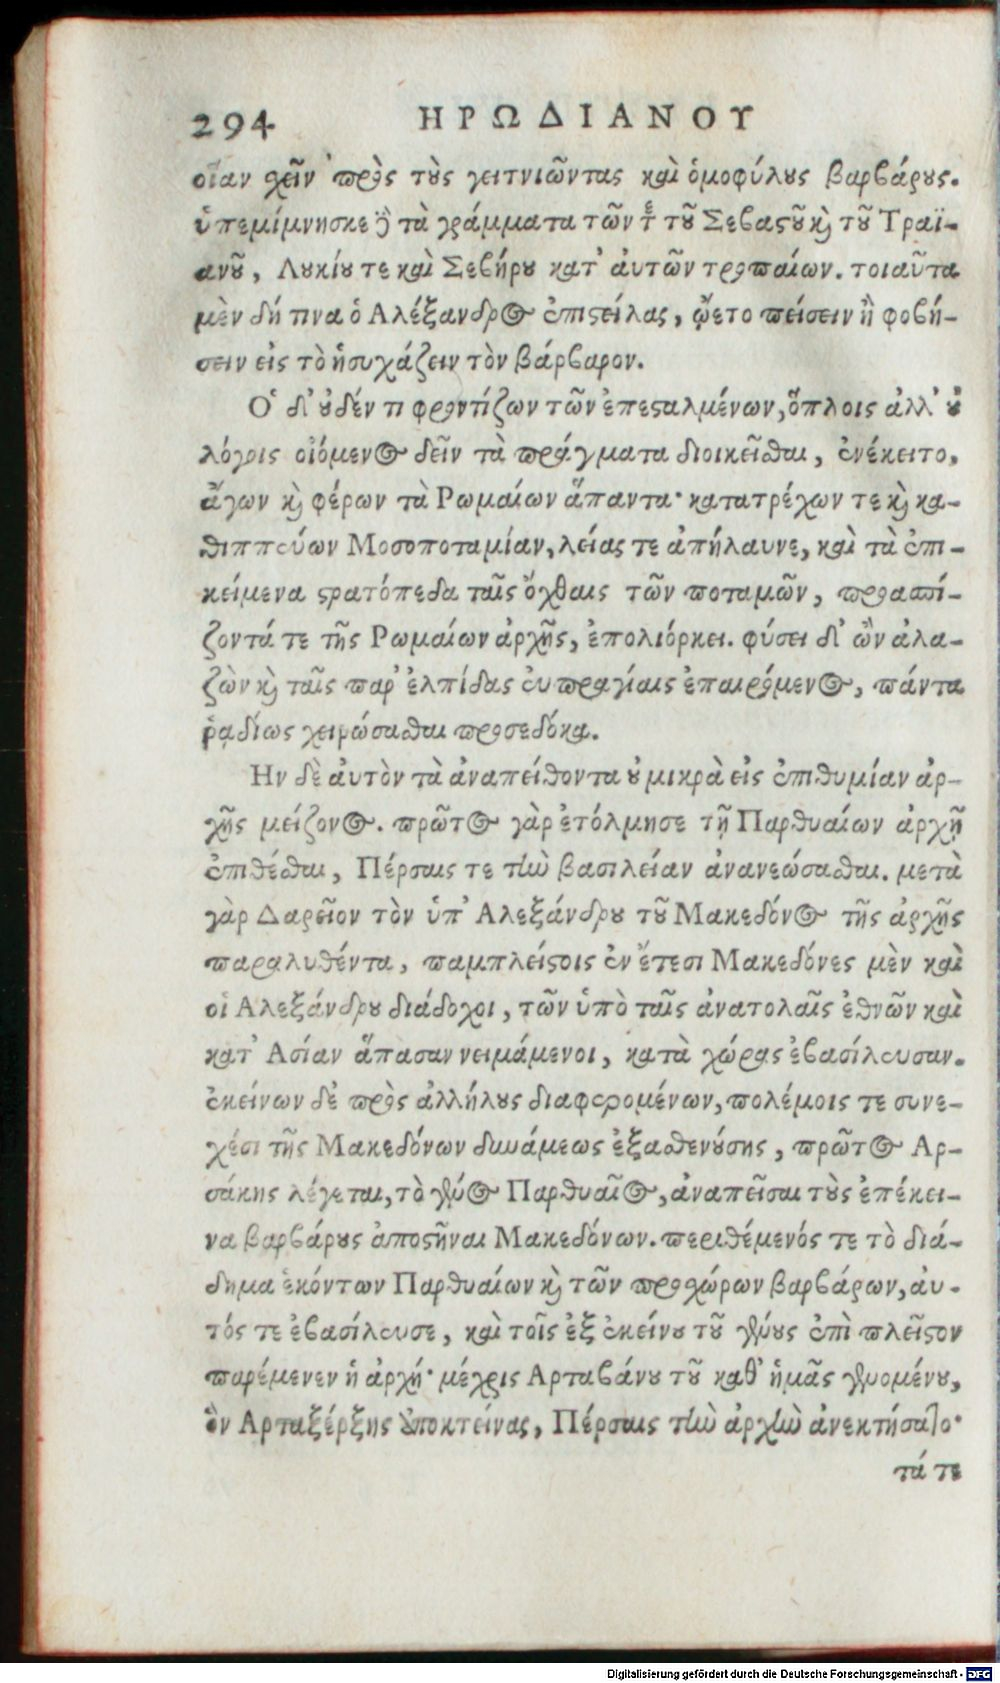 294 ΗΡΩΔΙΑΝΟΥ
οἵαν χεῖν πρὸς τοὺς γειτνιῶντας καὶ ὁμοφύλους βαρβάρους.
ὑπεμίμνησκε δὲ τὰ γράμματα τῶν τε τοῦ Σεβαστοῦ καὶ τοῦ Τραϊ-
ανοῦ, Λουκίου τε καὶ Σεβήρου κατ' αὐτῶν τροπαίων. τοιαῦτα
μὲν δή τινα ὁ Αλέξανδρος ἐπιστείλας, ᾤετο πείσειν ἢ φοβή-
σειν εἰς τὸ ἡσυχάζειν τὸν βάρβαρον.
Ὁ δ' οὐδέν τι φροντίζων τῶν ἐπεσταλμένων, ὅπλοις ἀλλ' οὐ
λόγοις οἰόμενος δεῖν τὰ πράγματα διοικεῖσθαι, ἐνέκειτο,
ἄγων καὶ φέρων τὰ Ρωμαίων ἅπαντα· κατατρέχων τε καὶ κα-
θιππεύων Μοσοποταμίαν, λείας τε ἀπήλαυνε, καὶ τὰ ἐπι-
κείμενα στρατόπεδα ταῖς ὄχθαις τῶν ποταμῶν, προασπί-
ζοντά τε τῆς Ρωμαίων ἀρχῆς, ἐπολιόρκει. φύσει δ' ὢν ἀλα-
ζὼν καὶ ταῖς παρ' ἐλπίδας εὐπραγίαις ἐπαιρόμενος, πάντα
ῥᾳδίως χειρώσασθαι προσεδόκα.
Ην δὲ αὐτὸν τὰ ἀναπείθοντα οὐ μικρὰ εἰς ἐπιθυμίαν ἀρ-
χῆς μείζονος. πρῶτος γὰρ ἐτόλμησε τῇ Παρθυαίων ἀρχῇ
ἐπιθέσθαι, Πέρσαις τε τὴν βασιλείαν ἀνανεώσασθαι. μετὰ
γὰρ Δαρεῖον τὸν ὑπ' Αλεξάνδρου τοῦ Μακεδόνος τῆς ἀρχῆς
παραλυθέντα, παμπλείστοις ἐν ἔτεσι Μακεδόνες μὲν καὶ
οἱ Αλεξάνδρου διάδοχοι, τῶν ὑπὸ ταῖς ἀνατολαῖς ἐθνῶν καὶ
κατ' Ασίαν ἅπασαν νειμάμενοι, κατὰ χώρας ἐβασίλευσαν.
ἐκείνων δὲ πρὸς ἀλλήλους διαφερομένων, πολέμοις τε συνε-
χέσι τῆς Μακεδόνων δυνάμεως ἐξασθενούσης, πρῶτος Αρ-
σάκης λέγεται, τὸ γένος Παρθυαῖος, ἀναπεῖσαι τοὺς ἐπέκει-
να βαρβάρους ἀποστῆναι Μακεδόνων. περιθέμενός τε τὸ διά-
δημα ἑκόντων Παρθυαίων καὶ τῶν προσχώρων βαρβάρων, αὐ-
τός τε ἐβασίλευσε, καὶ τοῖς ἐξ ἐκείνου τοῦ γένους ἐπὶ πλεῖστον
παρέμενεν ἡ ἀρχή· μέχρις Αρταβάνου τοῦ καθ' ἡμᾶς γενομένου,
ὃν Αρταξέρξης ἀποκτείνας, Πέρσαις τὴν ἀρχὴν ἀνεκτήσατο·
τά τε
Digitalisierung gefördert durch die Deutsche Forschungsgemeinschaft - DFG